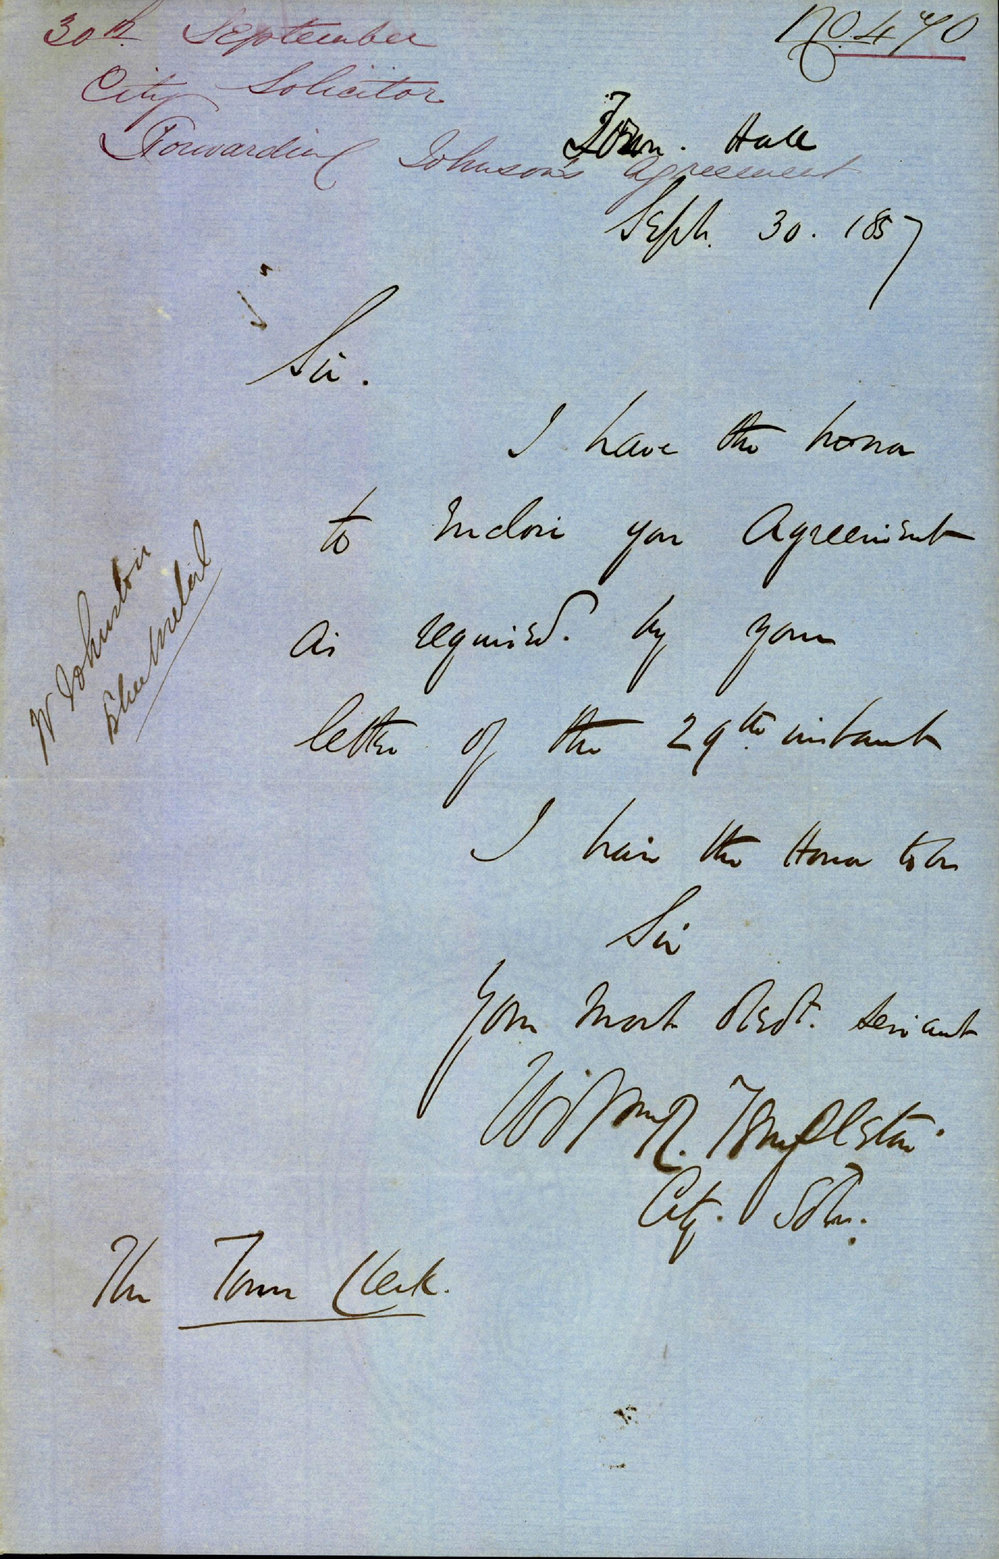 30th September
No. 470
City Solicitor
Forwarding Johnson's Agreement
Town Hall
Sept. 30. 1857
Sir.
I have the honor
to Enclose you Agreement
as required by your
letter of the 29th instant
I have the Honor to be
Sir
Your Most Obedt. Servant
Willm. R. Templeton
City. Solr.
The Town Clerk.
W Johnston